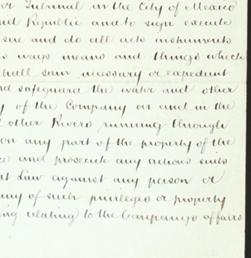 or Tribunal in the City of Mexico
nd Republic and to sign execute
sue and do all acts instruments
s ways means and things which
shall seem necessary or expedient
nd safeguard the water and other
y of the Company on and in the
d other Rivers running through
on any part of the property of the
ce and prosecute any actions suits
at Law against any person or
any of such privileges or property
ing relating to the Companys affairs